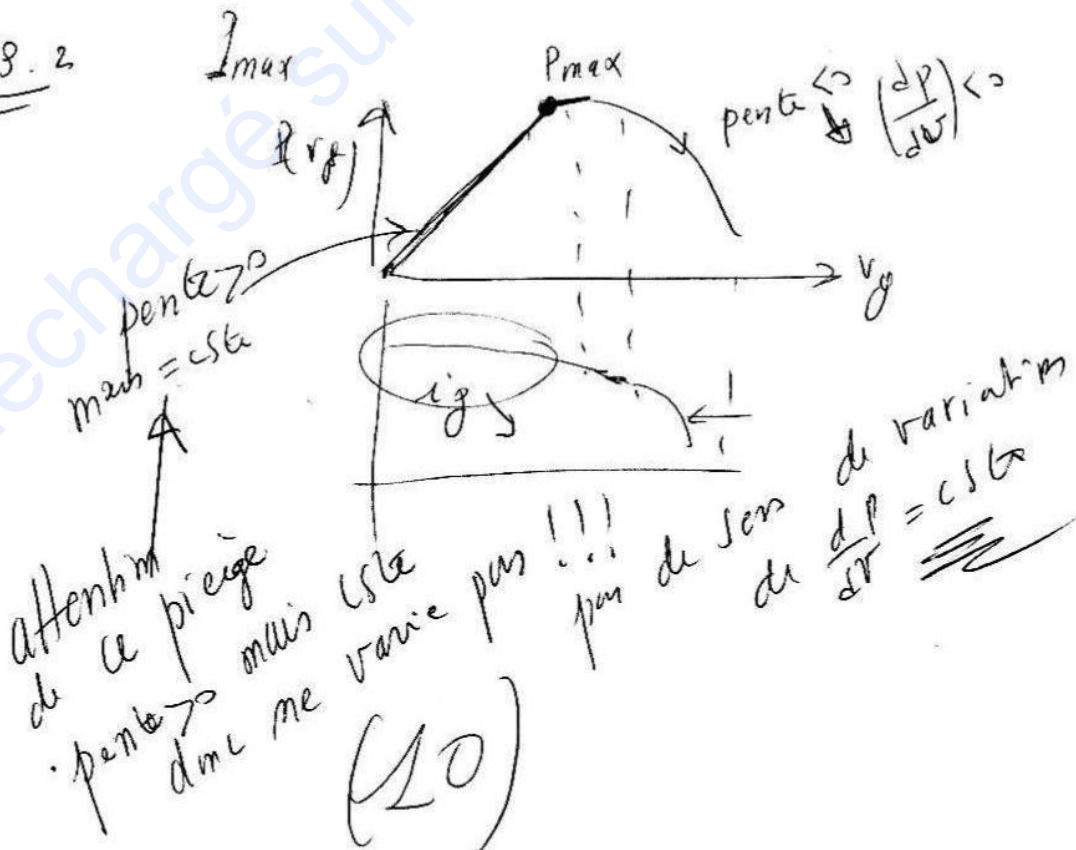 3.2
Imax
Pmax
P(vg)
pente <0 (dP/dv) <0
vg
pente >0
mais = cste
ig ↘
attention
de ce piège
. pente >0 mais cste
donc ne varie pas !!!
pas de sens de variation
de dP/dv = cste
(10)
échargé sur